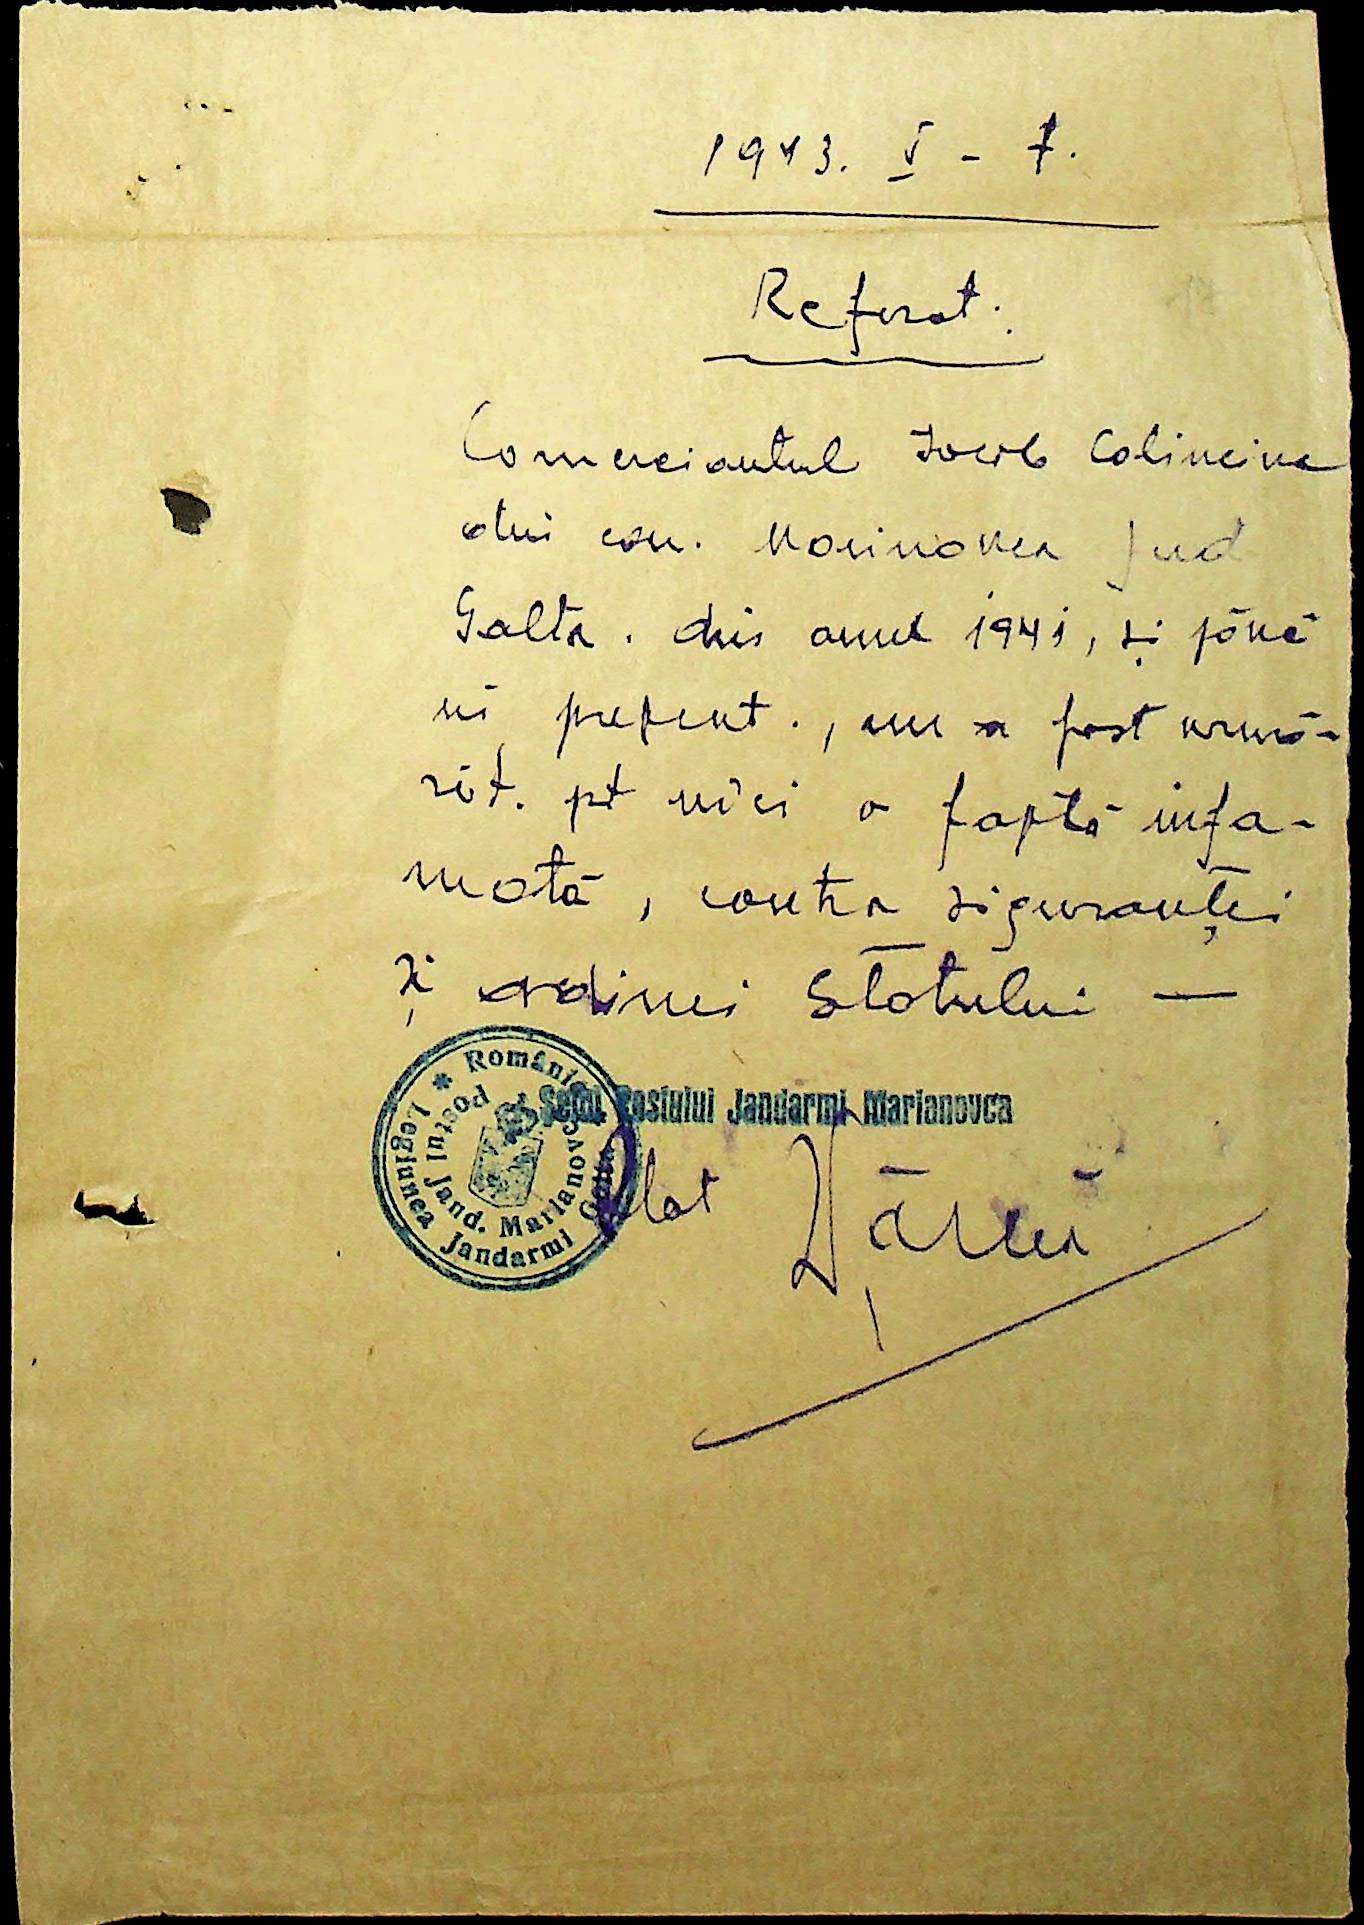 1943. V - 7.
Referat.
Comerciantul Iacob Calincine
din com. Marinovca Jud
Golta. din anul 1941, și până
în prezent., nu a fost urmă-
rit. pt nici o faptă infa-
mată, contra siguranței
și ordinei Statului —
România
Legiunea Jandarmi Golta
Postul Jand. Marianovca
Șeful Postului Jandarmi Marianovca
Plot